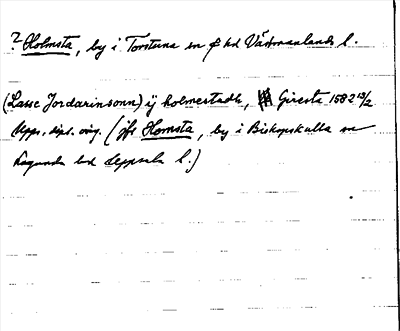 ? Holmsta, by i Torstuna sn o hd Västmanlands l.
(Lasse Jordarinsonn) ij holmestadh, Giresta 1582 13/2
Upps. dipl. orig. (jfr Homsta, by i Biskopskulla sn
Lagunda hd Uppsala l.)